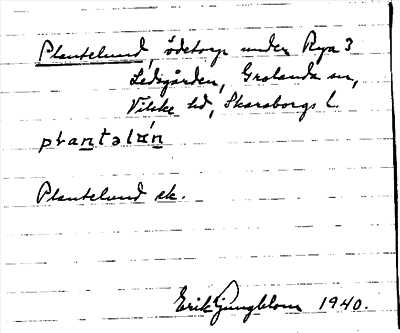 Plantelund, ödetorp under Rya 3
Ledsgården, Grolanda sn,
Vilske hd, Skaraborgs l.
plantəlun
Plantelund ek.
Erik Ljungblom 1940.